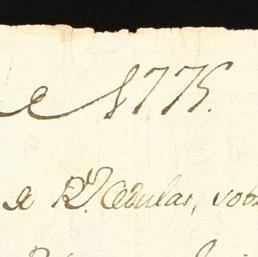 e 1775.
de Rs. Cedulas, sob